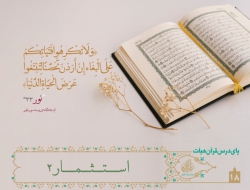 وَلَا تُكْرِهُوا فَتَيَاتِكُمْ
عَلَى الْبِغَاءِ إِنْ أَرَدْنَ تَحَصُّنًا لِتَبْتَغُوا
عَرَضَ الْحَيَاةِ الدُّنْيَا
نور ٣٣
پای درس قرآن حیات
استثمار ۲